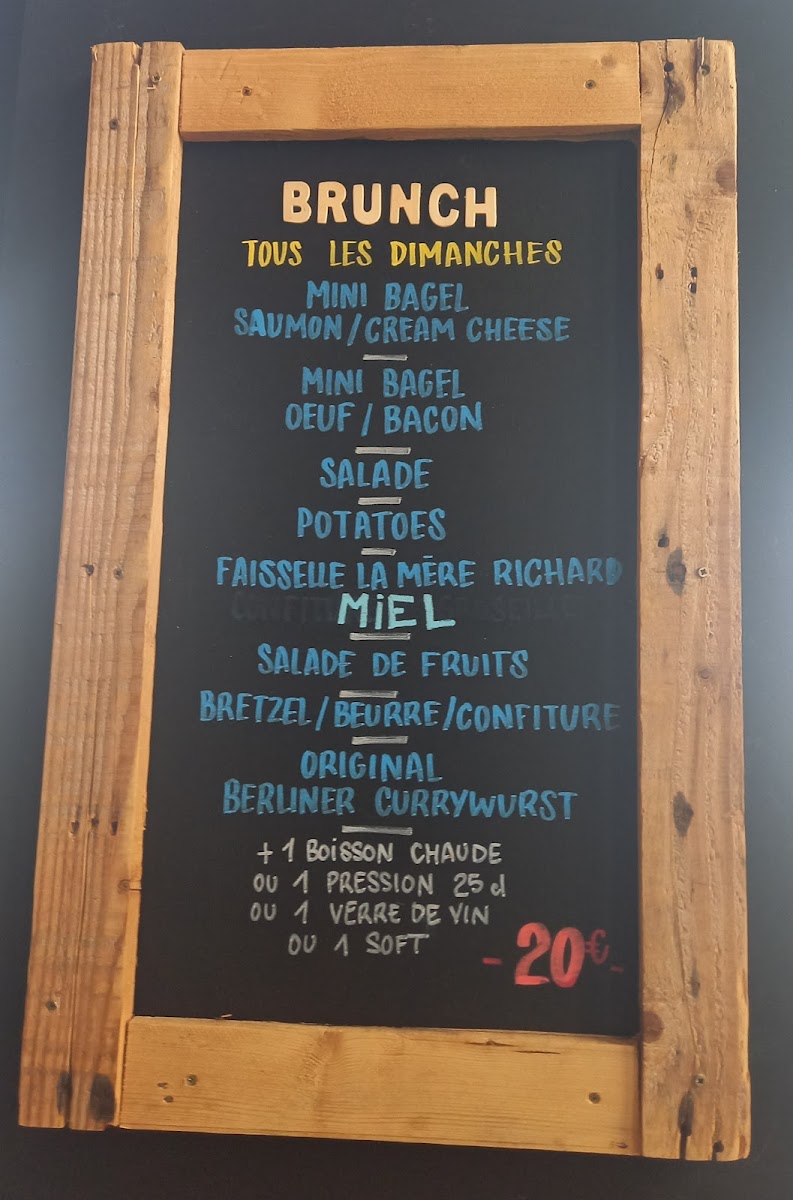 BRUNCH
TOUS LES DIMANCHES
MINI BAGEL
SAUMON/CREAM CHEESE
MINI BAGEL
OEUF/BACON
SALADE
POTATOES
FAISSELLE LA MÈRE RICHARD
MiEL
SALADE DE FRUITS
BRETZEL/BEURRE/CONFITURE
ORIGINAL
BERLINER CURRYWURST
+ 1 BOISSON CHAUDE
OU 1 PRESSION 25 cl
OU 1 VERRE DE VIN
OU 1 SOFT
- 20€ -